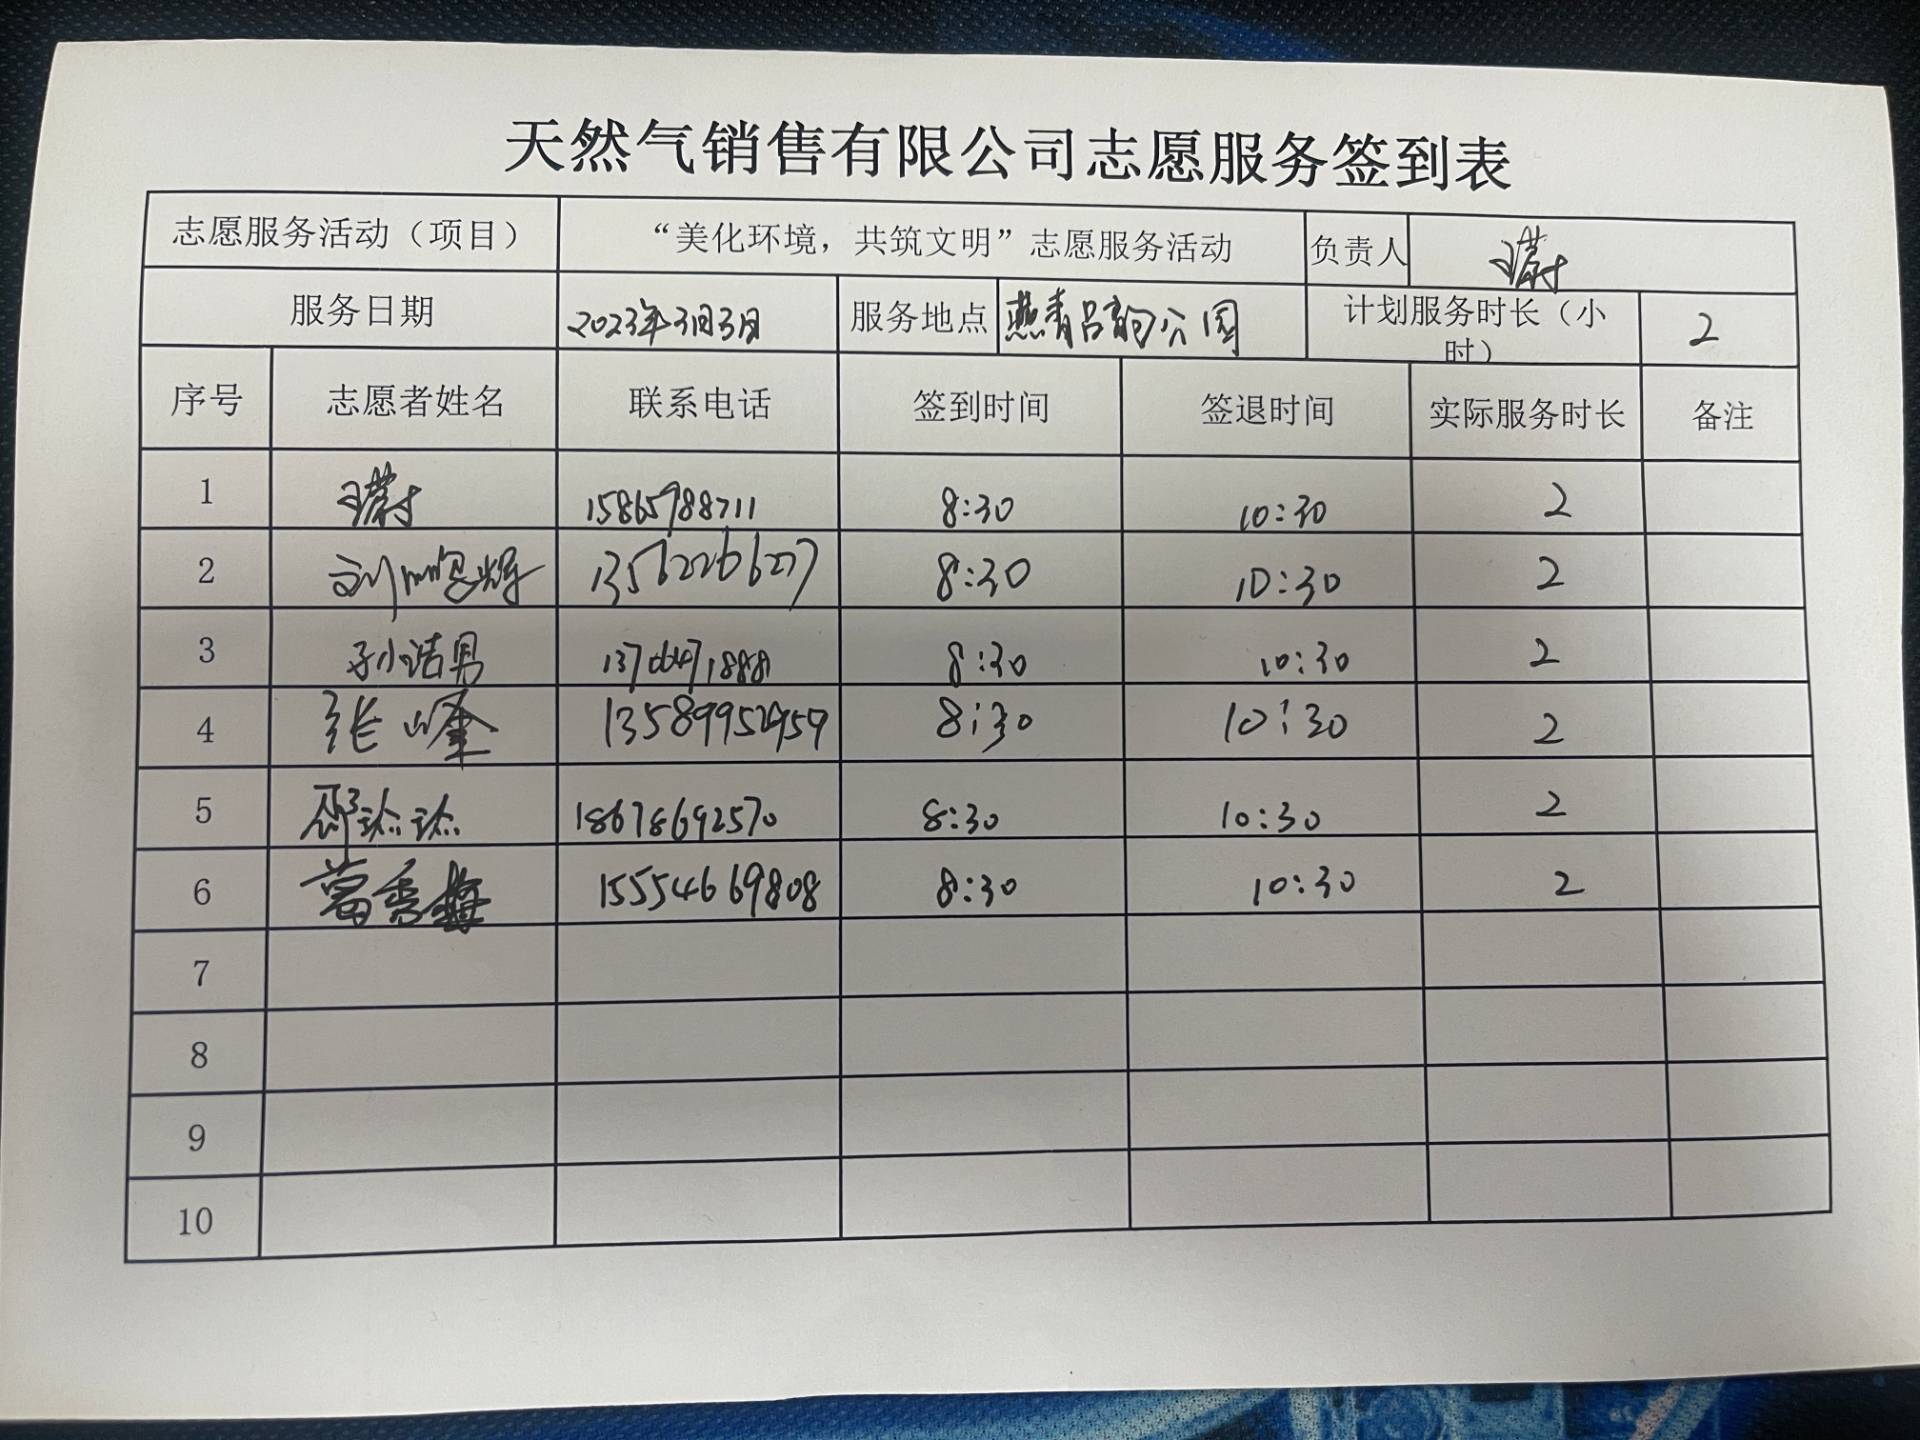 天然气销售有限公司志愿服务签到表
志愿服务活动（项目） “美化环境，共筑文明”志愿服务活动 负责人 王蔚
服务日期 2023年3月3日 服务地点 燕青吕韵公园 计划服务时长（小时） 2
序号 志愿者姓名 联系电话 签到时间 签退时间 实际服务时长 备注
1 王蔚 15865988711 8:30 10:30 2
2 刘鹏辉 13562266277 8:30 10:30 2
3 孙洁男 13706471888 8:30 10:30 2
4 张峰 13589952959 8:30 10:30 2
5 邵琳琳 18678692570 8:30 10:30 2
6 秀梅 15554669808 8:30 10:30 2
7
8
9
10